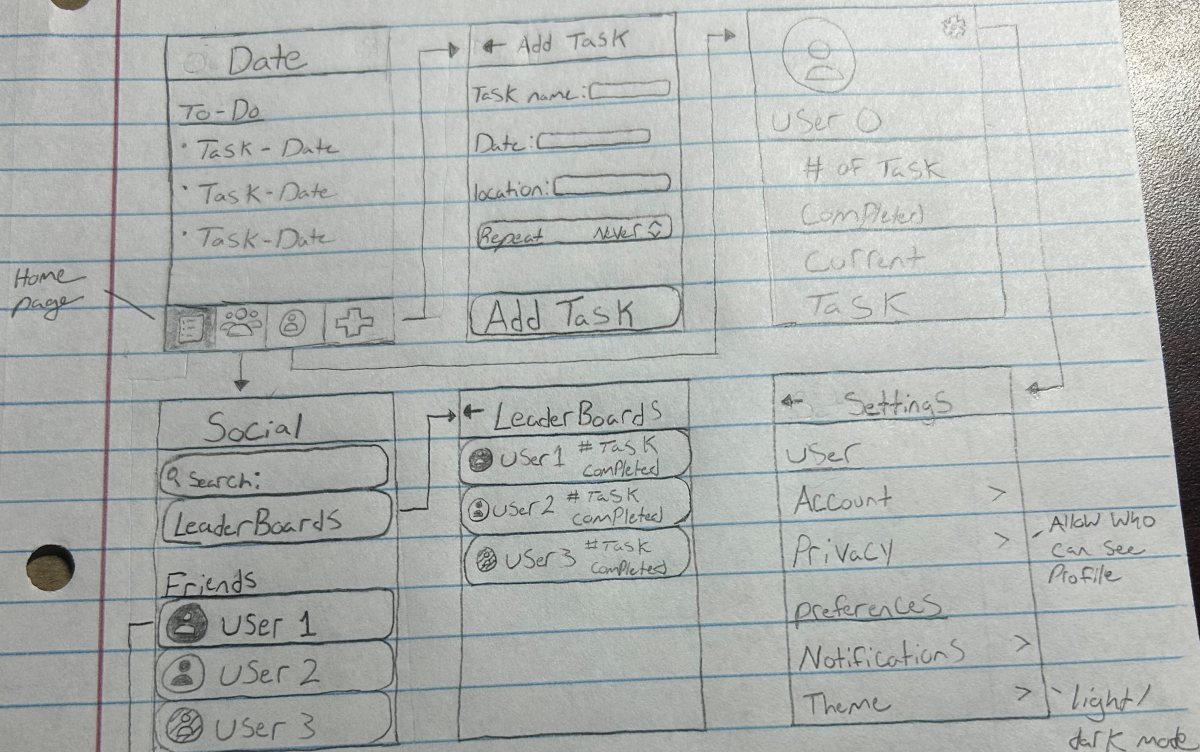 Date
To-Do
· Task - Date
· Task - Date
· Task - Date
Home
page
← Add Task
Task name:
Date:
location:
Repeat Never
Add Task
User 0
# of Task
Completed
Current
Task
Social
Search:
LeaderBoards
Friends
User 1
User 2
User 3
← LeaderBoards
User 1 # Task
completed
User 2 # Task
completed
User 3 # Task
completed
← Settings
User
Account >
Privacy >
Allow who
can see
Profile
preferences
Notifications >
Theme >
light/
dark mode